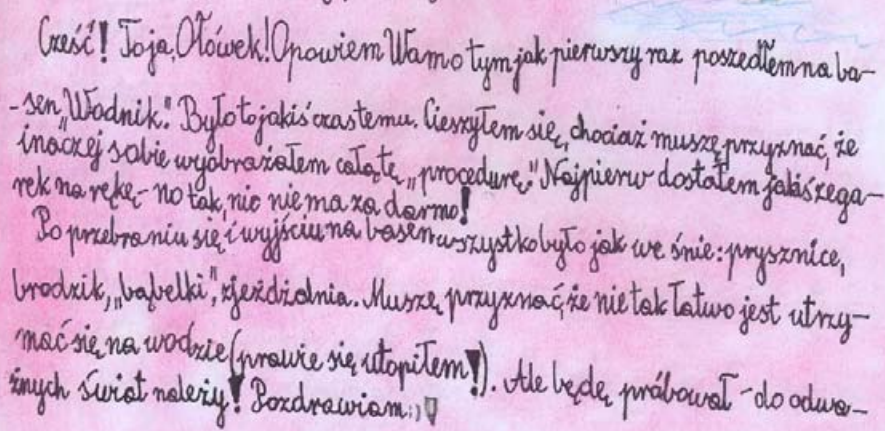 Cześć! To ja, Ołówek! Opowiem Wam o tym jak pierwszy raz poszedłem na ba-
-sen „Wodnik”. Było to jakiś czas temu. Cieszyłem się, chociaż muszę przyznać, że
inaczej sobie wyobrażałem całą tę „procedurę”. Najpierw dostałem jakiś zega-
rek na rękę - no tak, nic nie ma za darmo!
Po przebraniu się i wyjściu na basen wszystko było jak we śnie: prysznice,
brodzik, „bąbelki”, zjeżdżalnia. Muszę przyznać, że nie tak łatwo jest utrzy-
mać się na wodzie (prawie się utopiłem!). Ale będę próbował - do odwa-
żnych świat należy! Pozdrawiam :)